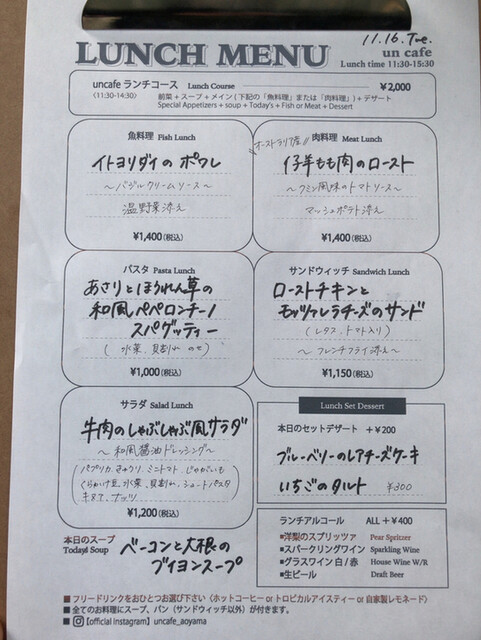 LUNCH MENU
11.16. Tue.
un cafe
Lunch time 11:30-15:30
uncafe ランチコース Lunch Course ¥2,000
〈11:30-14:30〉 前菜 + スープ + メイン (下記の「魚料理」または「肉料理」) + デザート
Special Appetizers + soup + Today's + Fish or Meat + Dessert
魚料理 Fish Lunch
イトヨリダイのポワレ
〜バジルクリームソース〜
温野菜添え
¥1,400(税込)
肉料理 Meat Lunch
"オーストラリア産"
仔羊もも肉のロースト
〜クミン風味のトマトソース〜
マッシュポテト添え
¥1,400(税込)
パスタ Pasta Lunch
あさりとほうれん草の
和風ペペロンチーノ
スパゲッティー
(水菜、貝割れ のせ)
¥1,000(税込)
サンドウィッチ Sandwich Lunch
ローストチキンと
モッツァレラチーズのサンド
(レタス、トマト入り)
〜フレンチフライ添え〜
¥1,150(税込)
サラダ Salad Lunch
牛肉のしゃぶしゃぶ風サラダ
〜和風醤油ドレッシング〜
(パプリカ、きゅうり、ミニトマト、じゃがいも
水菜、貝割れ、ショートパスタ
キヌア、ナッツ)
¥1,200(税込)
Lunch Set Dessert
本日のセットデザート +¥200
ブルーベリーのレアチーズケーキ
いちごのタルト ¥300
本日のスープ
Todays Soup
ベーコンと大根の
ブイヨンスープ
ランチアルコール ALL +¥400
■洋梨のスプリッツァ Pear Spritzer
■スパークリングワイン Sparkling Wine
■グラスワイン 白/赤 House Wine W/R
■生ビール Draft Beer
■フリードリンクをおひとつお選び下さい〈ホットコーヒー or トロピカルアイスティー or 自家製レモネード〉
■全てのお料理にスープ、パン(サンドウィッチ以外)が付きます。
■【official Instagram】uncafe_aoyama